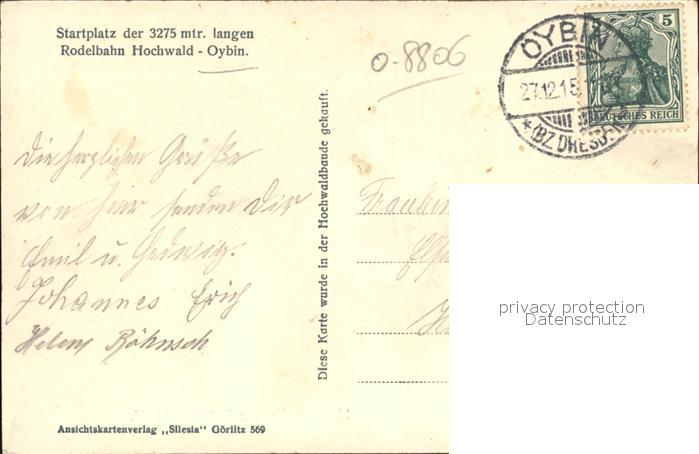 Startplatz der 3275 mtr. langen
Rodelbahn Hochwald - Oybin.
0-8806
OYBIN
27.12.15
*(BZ DRESD
5
DEUTSCHES REICH
Die herzlichen Grüße
von hier senden Dir
Emil u. Hedwig.
Johannes Erich
Helene Röhnsch
Diese Karte wurde in der Hochwaldbaude gekauft.
Fräulein
privacy protection
Datenschutz
Ansichtskartenverlag „Silesia" Görlitz 569